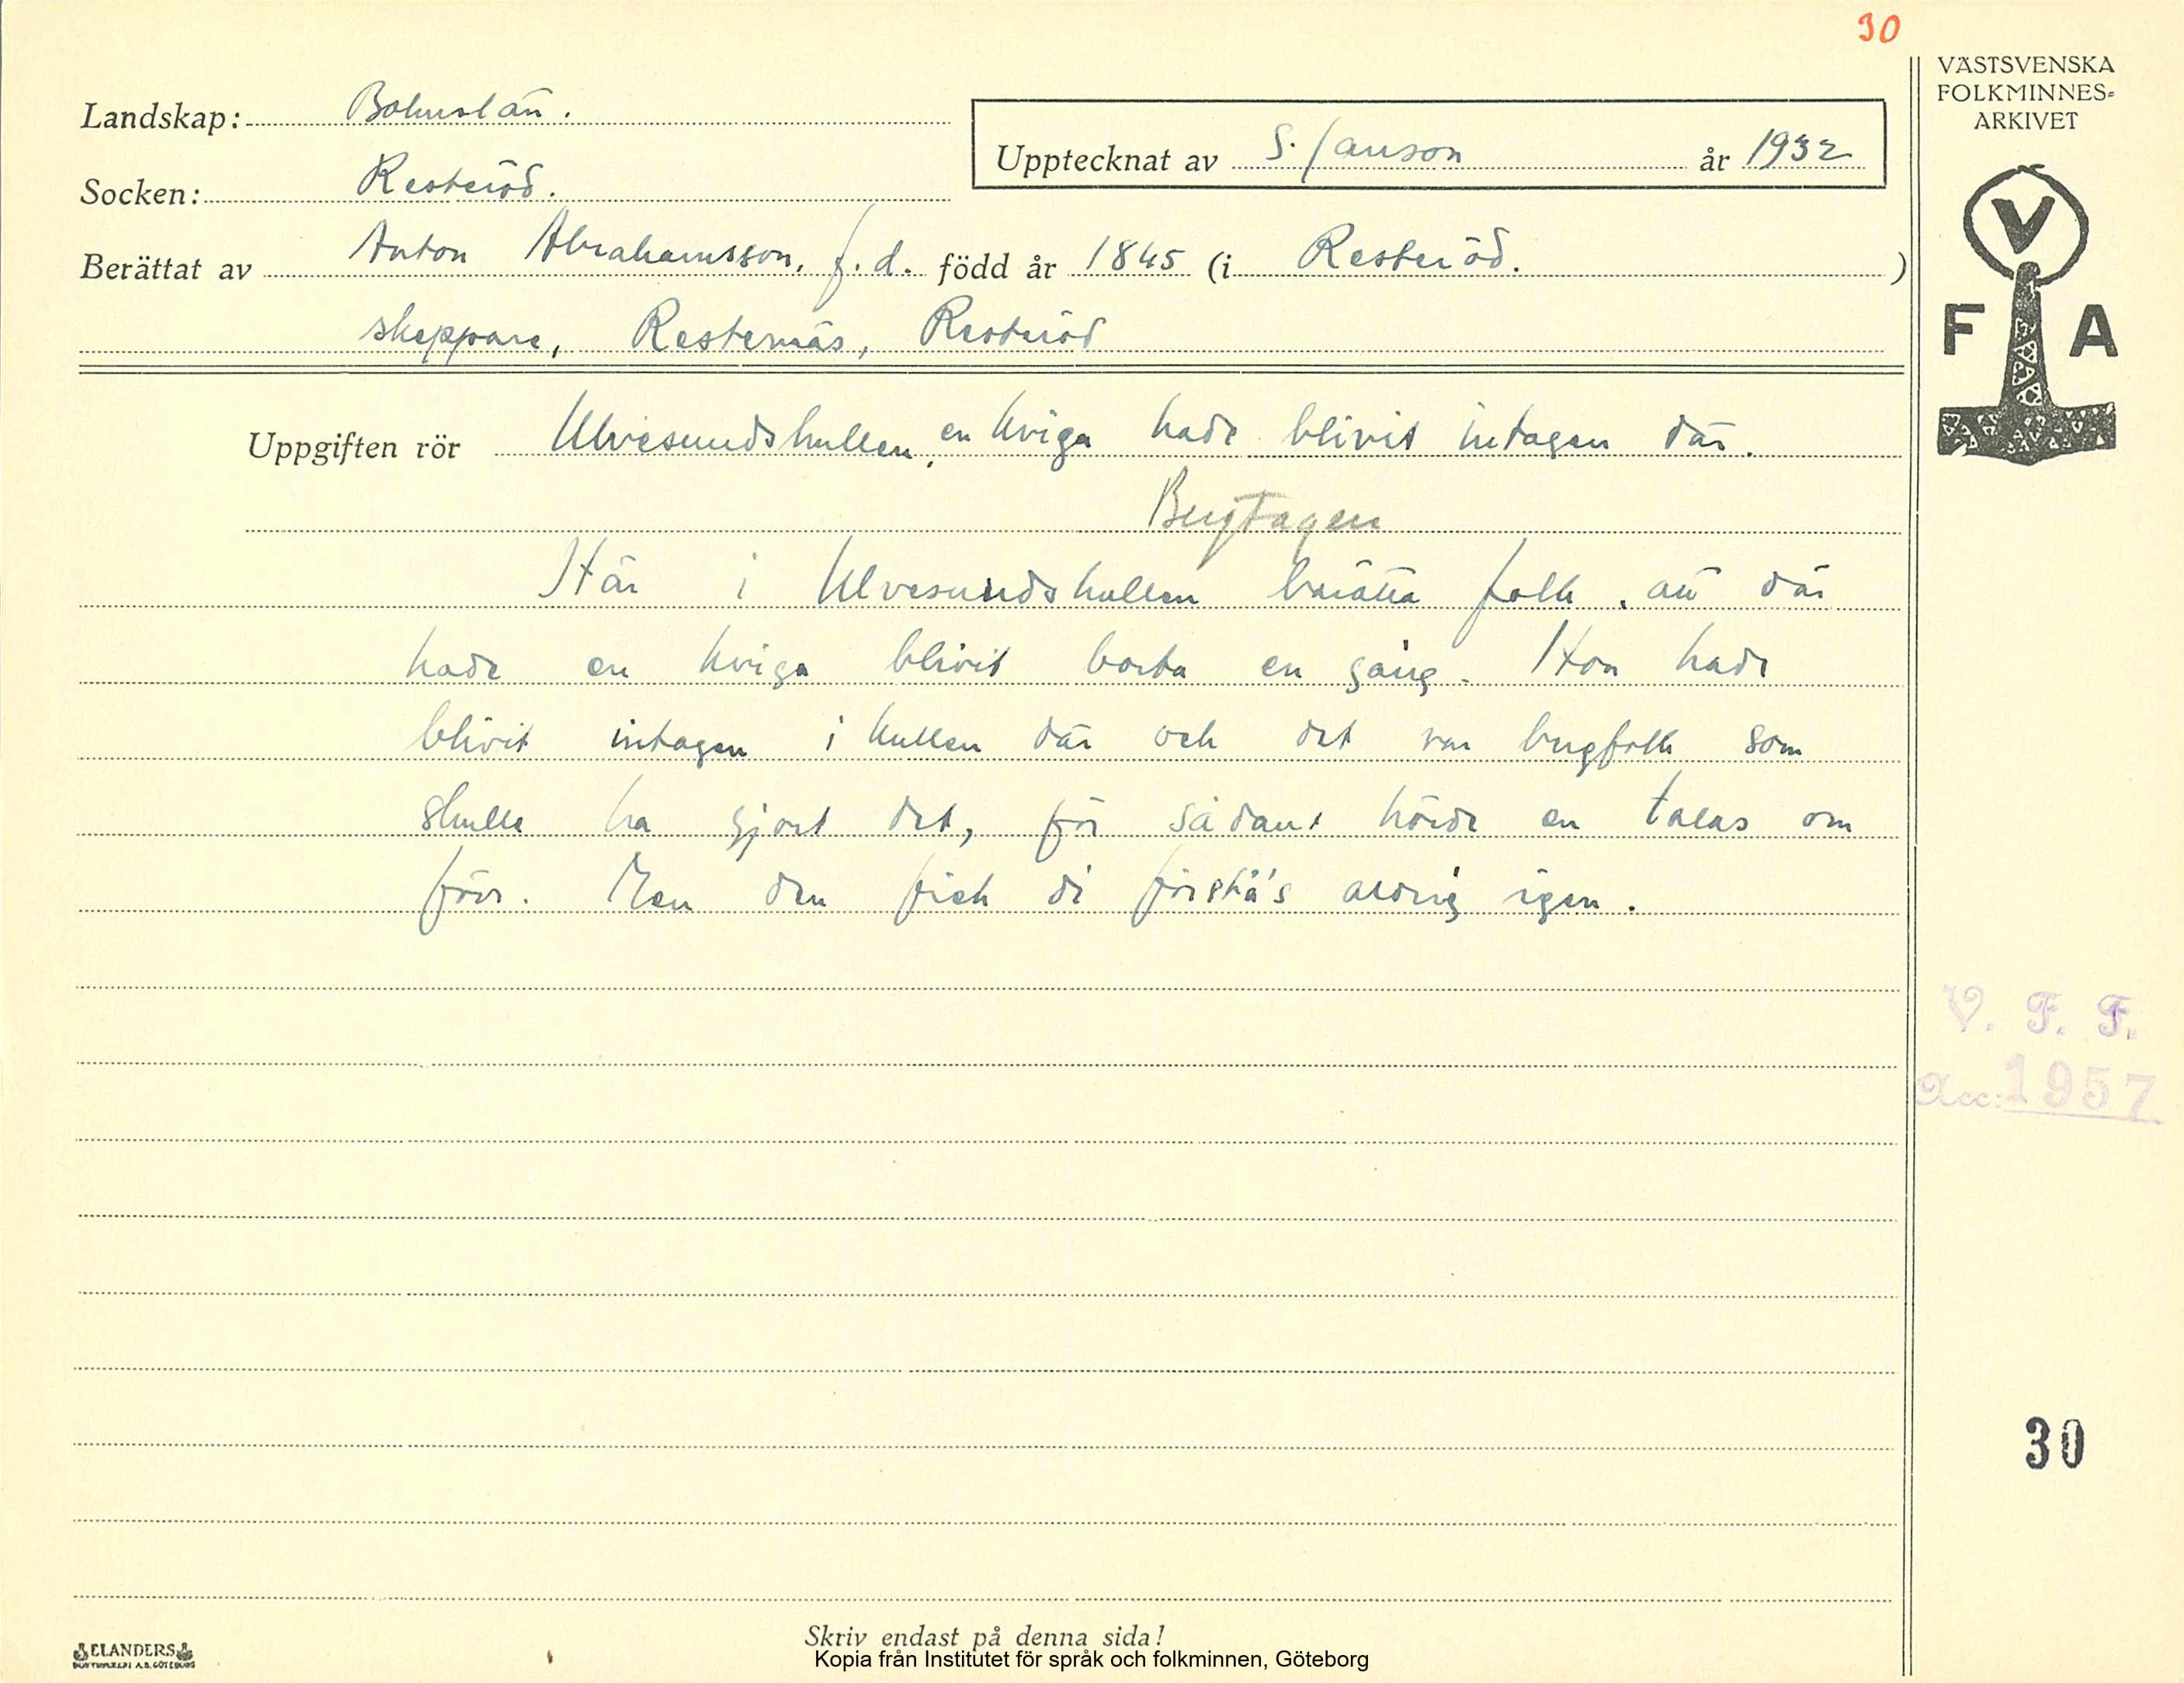 30
VÄSTSVENSKA
FOLKMINNES-
ARKIVET
Landskap: Bohuslän.
Upptecknat av S. Janson år 1932
Socken: Resteröd.
Berättat av Anton Abrahamsson, f.d. född år 1845 (i Resteröd. )
skeppare, Resternäs, Resteröd
V
F A
Uppgiften rör Ulvesundskullen, en kviga hade blivit intagen där.
Bergtagen
Här i Ulvesundskullen berätta folk, att där
hade en kviga blivit borta en gång. Hon hade
blivit intagen i kullen där och det var bergfolk som
skulle ha gjort det, för sådant hörde en talas om
förr. Men den fick di förstå's aldrig igen.
V. F. F.
Acc: 1957
30
Skriv endast på denna sida!
ELANDERS
BOKTRYCKERI A.B. GÖTEBORG
Kopia från Institutet för språk och folkminnen, Göteborg